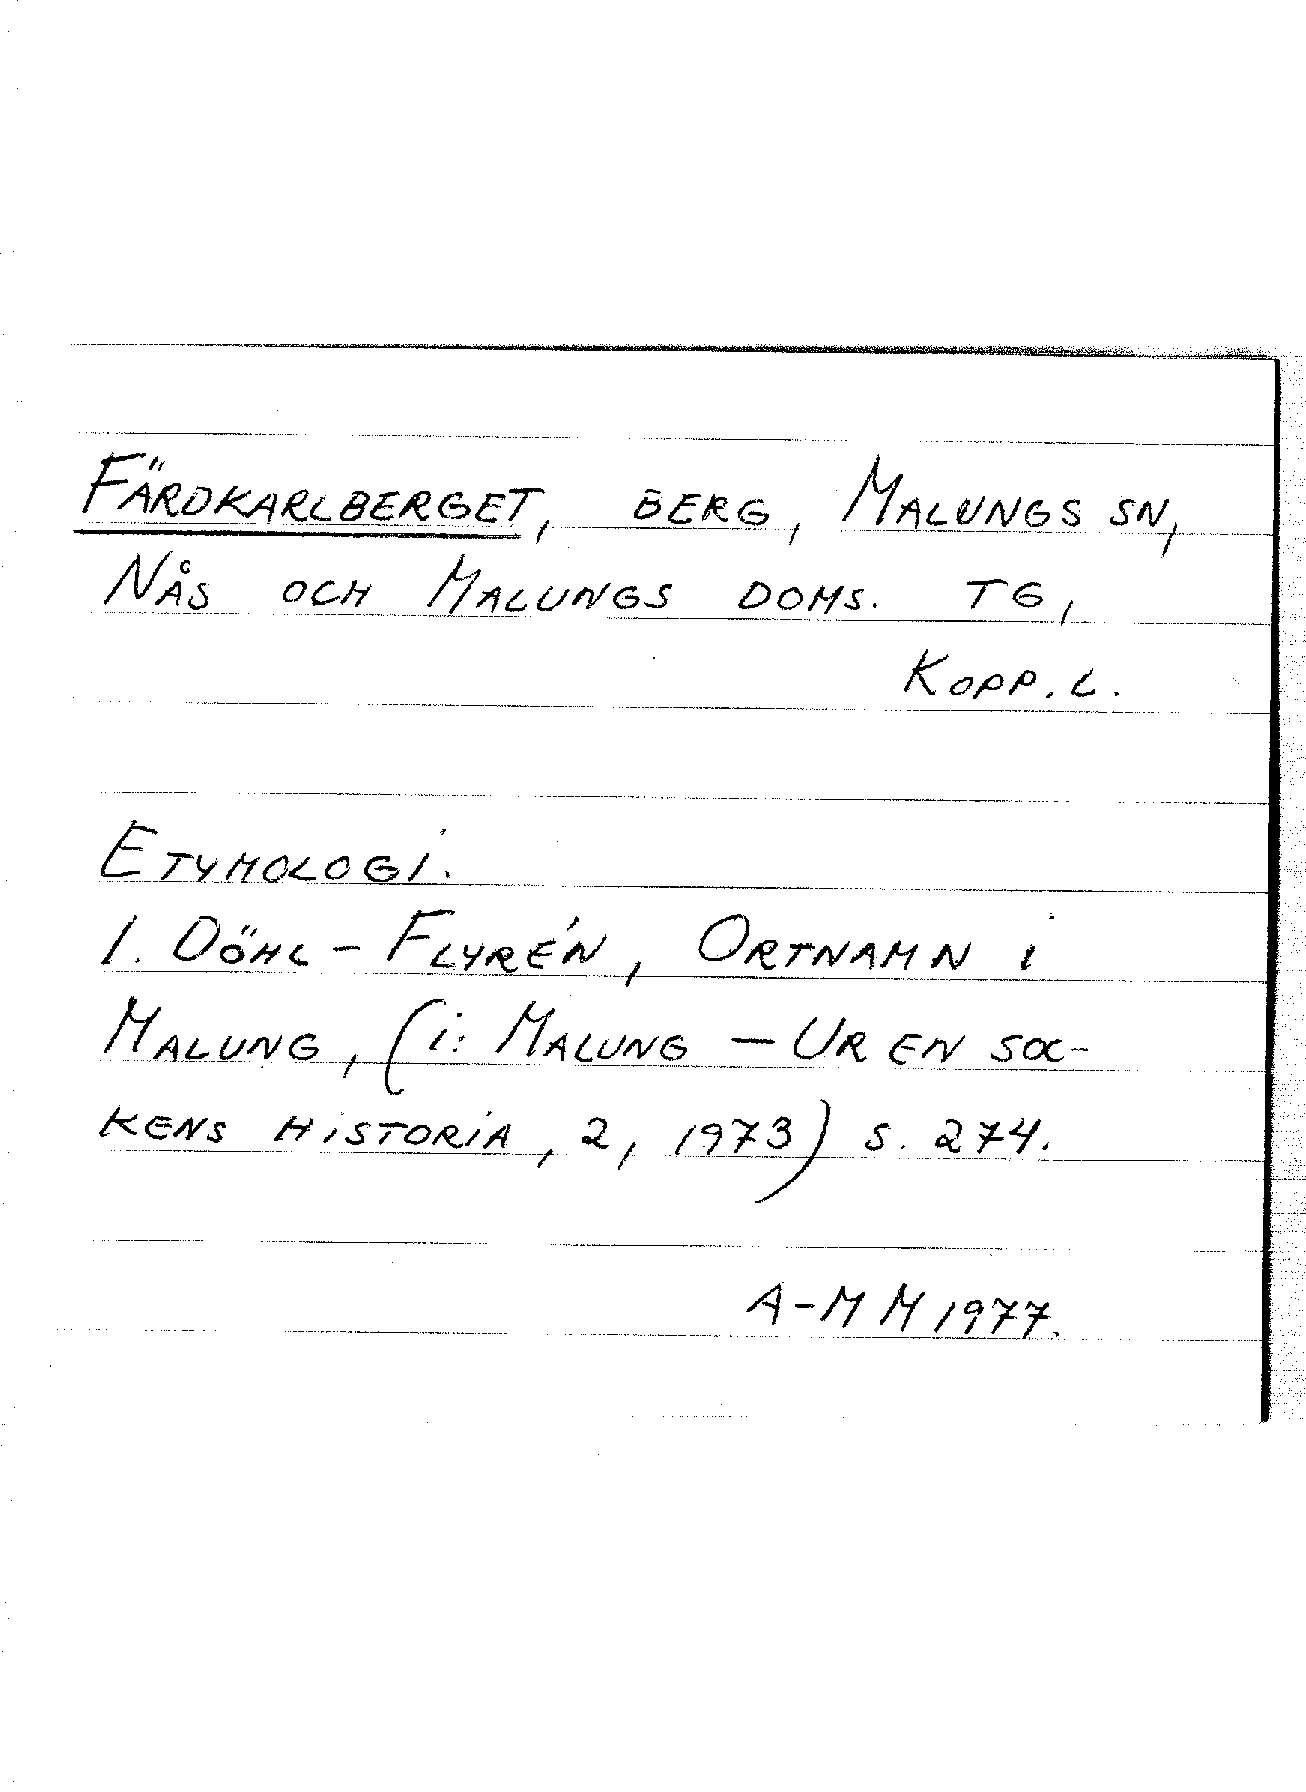 FÄRDKARLBERGET, BERG, MALUNGS SN,
NÅS OCH MALUNGS DOMS. TG,
KOPP. L.
ETYMOLOGI.
I. DÖHL-FLYRÉN, ORTNAMN I
MALUNG, (i: MALUNG – UR EN SOC-
KENS HISTORIA, 2, 1973) S. 274.
A-MM 1977.